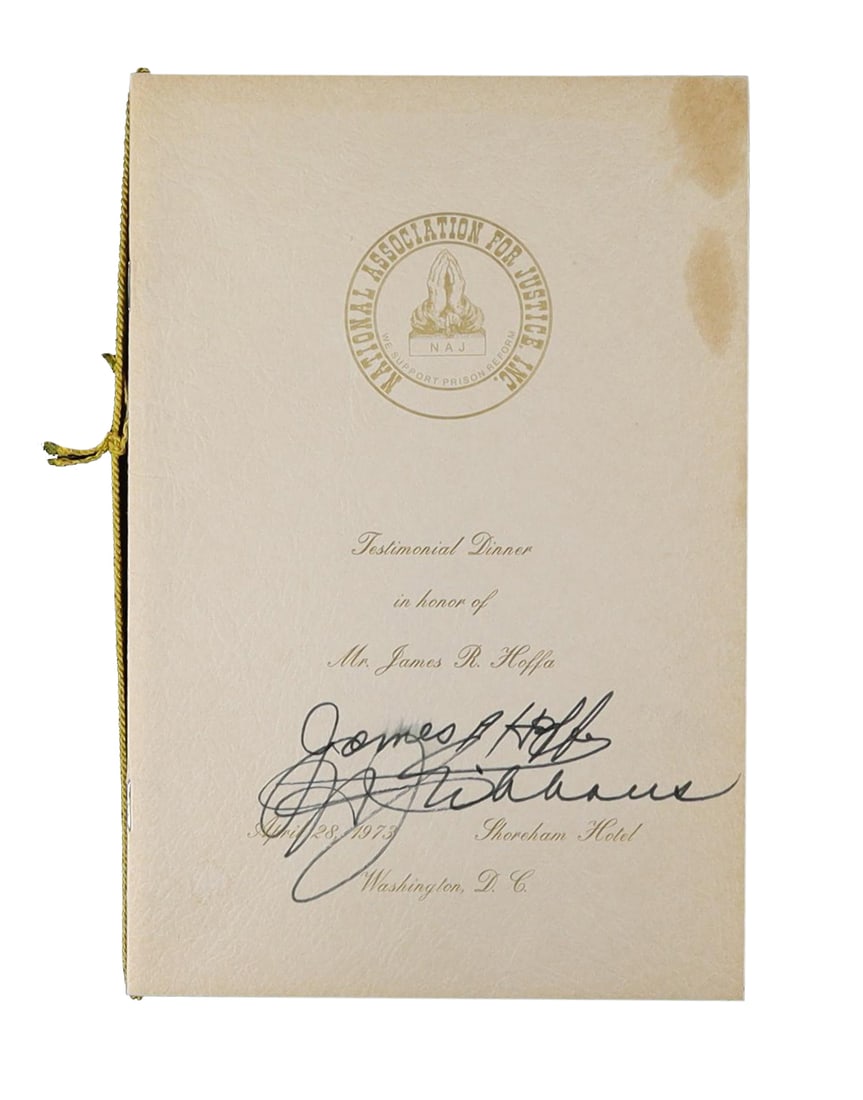 NATIONAL ASSOCIATION FOR JUSTICE, INC.
NAJ
WE SUPPORT PRISON REFORM
Testimonial Dinner
in honor of
Mr. James R. Hoffa
James R Hoffa
April 28, 1973 Shoreham Hotel
Washington, D. C.